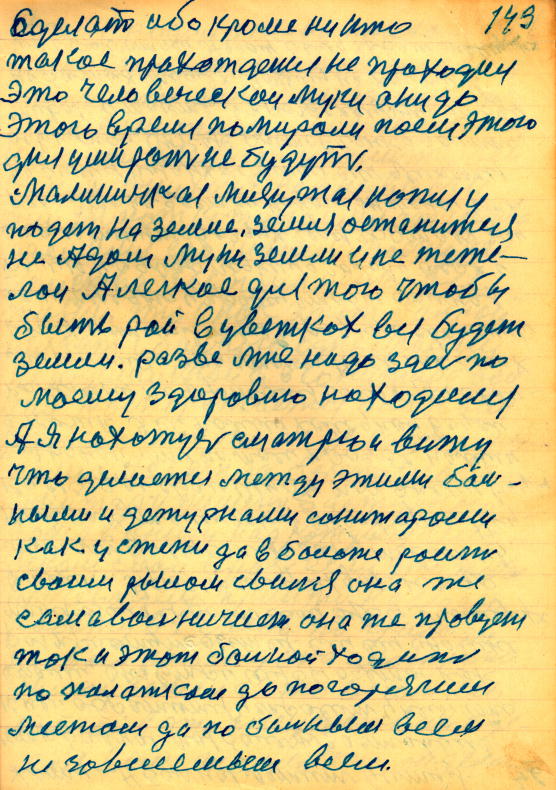 сделат ибо кроме никто 149
такое прахождения не проходил
Это человеческои муки они до
Этого время помирали посли Этого
дня умират не будут.
подет на земле. земля останится
не Адом муки земли и не теже-
лои А легкое для того чтобы
быть рой в цветках вся будет
земля. разве мне надо здес по
моему здоровию находится
А я нахожус сматрю и вижу
что делается между этими бол-
ными и дежурнами санитарами
как у степи да в болоте роит
своим рылом свиня она же
самавольничиет она же провует
так и этот болной ходит
по палаткам да по горячим
местам да по болным всем
не зависемым всем.